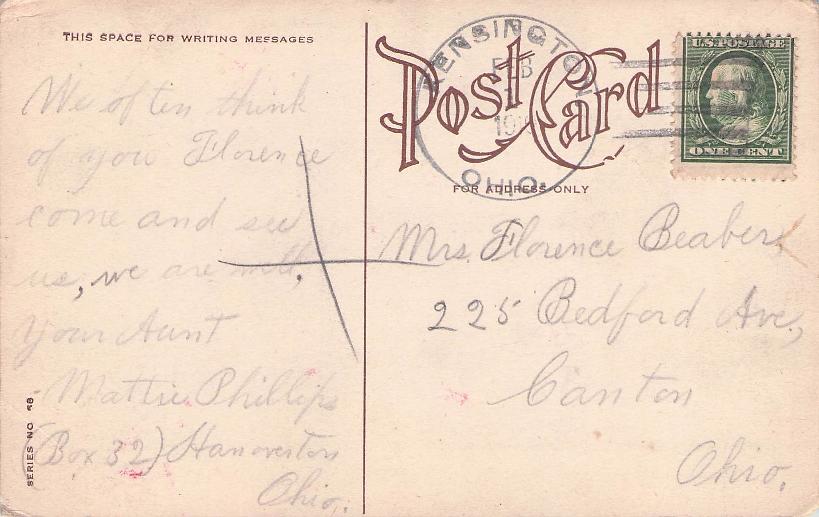 THIS SPACE FOR WRITING MESSAGES
We often think
of you Florence
come and see
us, we are well,
Your Aunt
Mattie Phillips
(Box 32) Hanoverton
Ohio.
SERIES NO 68
Post Card
FOR ADDRESS ONLY
KENSINGTON
FEB
OHIO.
U.S. POSTAGE
ONE CENT
Mrs. Florence Beaber,
225 Bedford Ave,
Canton
Ohio.